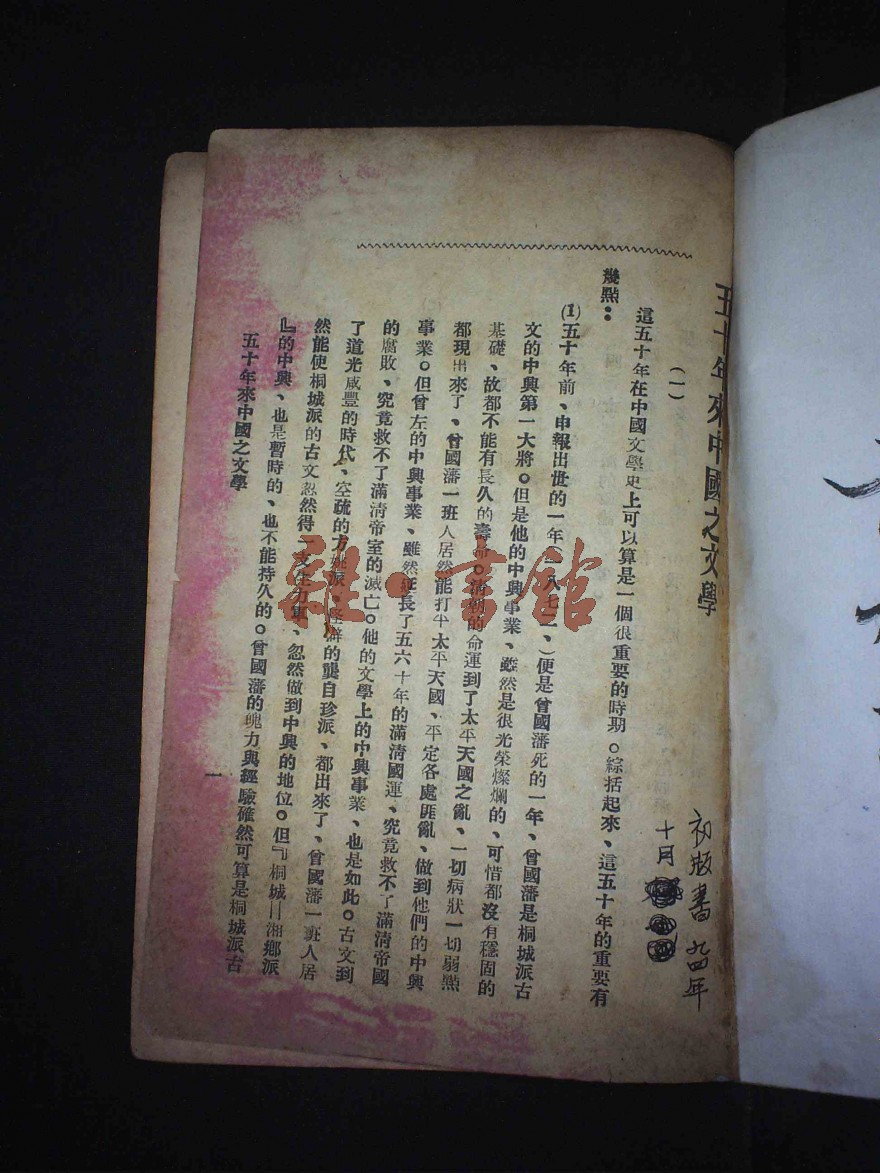 五十年來中國之文學
(一)
這五十年在中國文學史上可以算是一個很重要的時期。綜括起來、這五十年的重要有
幾點：
(1)五十年前、申報出世的一年(一八七二、)便是曾國藩死的一年、曾國藩是桐城派古
文的中興第一大將。但是他的中興事業、雖然是很光榮燦爛的、可惜都沒有穩固的
基礎、故都不能有長久的壽命。清朝的命運到了太平天國之亂、一切病狀一切弱點
都現出來了、曾國藩一班人居然能打平太平天國、平定各處匪亂、做到他們的中興
事業。但曾左的中興事業、雖然延長了五六十年的滿清國運、究竟救不了滿清帝國
的腐敗、究竟救不了滿清帝室的滅亡。他的文學上的中興事業、也是如此。古文到
了道光咸豐的時代、空疏的方姚派、怪僻的龔自珍派、都出來了、曾國藩一班人居
然能使桐城派的古文忽然得一支生力軍、忽然做到中興的地位。但『桐城—湘鄉派
』的中興、也是暫時的、也不能持久的。曾國藩的魄力與經驗確然可算是桐城派古
五十年來中國之文學
一
初版書 九四年
十月
雜·書館